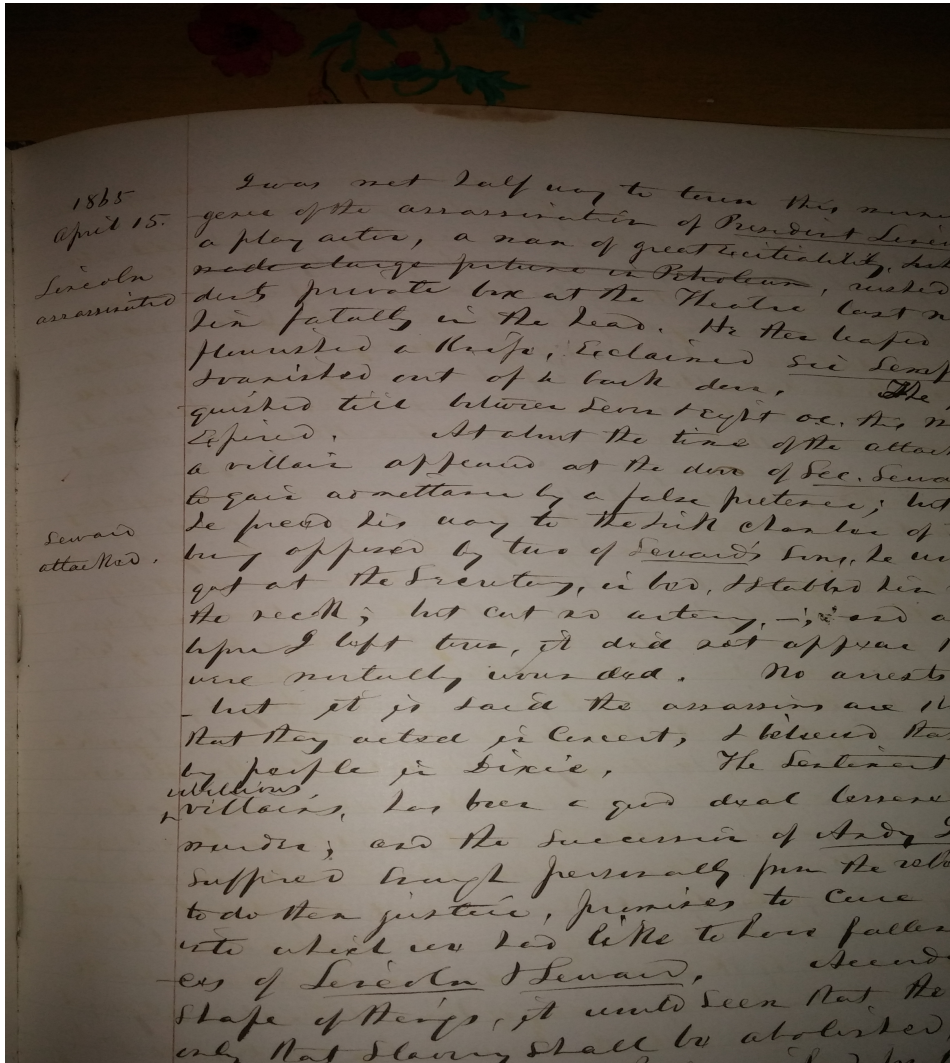 1865
April 15.
Lincoln
assassinated
I was met half way to town this
gence of the assassination of President
a play actor, a man of great excitability,
made a large fortune in Petroleum, rushed
dent's private box at the Theatre last
him fatally in the head. He then leaped
flourished a Knife, exclaimed Sic
& vanished out of a back door. The
guished till between seven & eight oc. this
expired. At about the time of the
a villain appeared at the door of Sec.
to gain admittance by a false pretence; but
he pressed his way to the sick chamber of
Seward
attacked.
being opposed by two of Seward's sons, he
got at the Secretary, in bed, & stabbed him
the neck; but cut no artery, and
before I left town, it did not appear
were mortally wounded. No arrests
- but it is said the assassins are
that they acted in Concert, & believed
by people in Dixie. The Sentiment
rebellious
villains, has been a good deal
murder; and the succession of Andy
suffered enough personally from the
to do them justice, promises to cure
into which we had like to have
of Lincoln & Seward.
shape of things, it would seem that the
only that Slavery shall be abolished